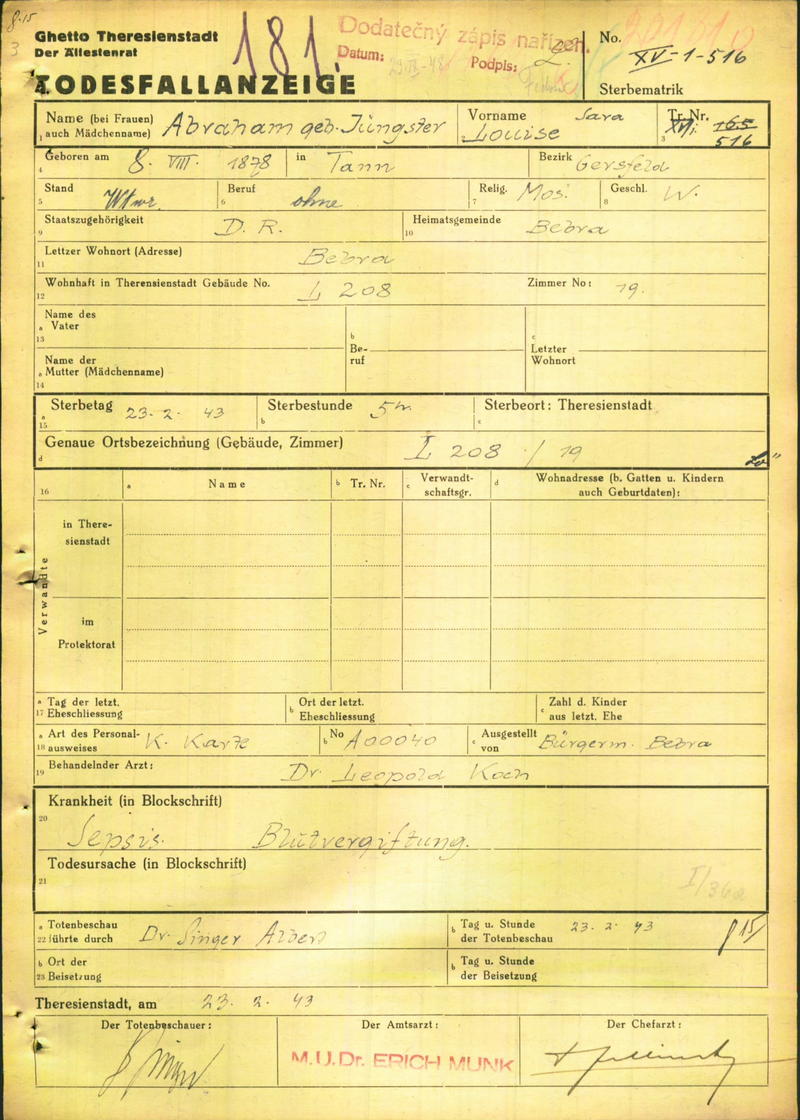 8·15
3
Ghetto Theresienstadt
Der Ältestenrat
TODESFALLANZEIGE
181.
Dodatečný zápis nařízen.
Datum:
Podpis:
No. XV-1-516
Sterbematrik
Name (bei Frauen) auch Mädchenname) Abraham geb. Jüngster
1
Vorname Louise Sara
2
Tr. Nr. 165
516
3
Geboren am 8. VIII. 1878
4
in Tann
Bezirk Gersfeld
Stand Wtwr.
5
Beruf ohne
6
Relig. Mos.
7
Geschl. W.
8
Staatszugehörigkeit D. R.
9
Heimatsgemeinde Bebra
10
Lettzer Wohnort (Adresse) Bebra
11
Wohnhaft in Therensienstadt Gebäude No. L 208
12
Zimmer No: 19.
Name des
a Vater
13
b
Be-
ruf
c
Letzter
Wohnort
Name der
a Mutter (Mädchenname)
14
Sterbetag 23. 2. 43
a
15
Sterbestunde 5h
b
Sterbeort: Theresienstadt
c
Genaue Ortsbezeichnung (Gebäude, Zimmer) L 208 / 19
d
16
a Name
b Tr. Nr.
c Verwandt-
schaftsgr.
d Wohnadresse (b. Gatten u. Kindern
auch Geburtdaten):
Verwandte
in There-
sienstadt
im
Protektorat
a Tag der letzt.
17 Eheschliessung
b Ort der letzt.
Eheschliessung
c Zahl d. Kinder
aus letzt. Ehe
a Art des Personal-
18 ausweises K. Karte
b No A00040
c Ausgestellt
von Bürgerm. Bebra
Behandelnder Arzt: Dr. Leopold Koch
19
Krankheit (in Blockschrift)
20
Sepsis. Blutvergiftung.
Todesursache (in Blockschrift)
21
I/36a
a Totenbeschau
22 führte durch Dr. Singer Albert
b Tag u. Stunde
der Totenbeschau 23. 2. 43 8 15/
b Ort der
23 Beisetzung
b Tag u. Stunde
der Beisetzung
Theresienstadt, am 23. 2. 43
Der Totenbeschauer:
Der Amtsarzt:
Der Chefarzt:
M.U.Dr. ERICH MUNK